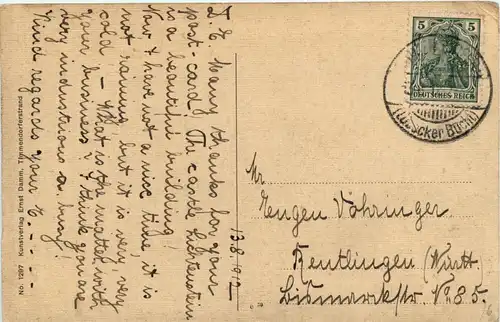 D. E. Many thanks for your
post-card! The castle Lichtenstein
is a beautiful building!
Now I have not a nice time, it is
not raining, but it is very, very
cold. – What is the matter with
your business? I think you are
very industrious a. busy!
Kind regards your E. - - - -
13.8.1912
No. 7297 Kunstverlag Ernst Damm, Timmendorferstrand
5 5
DEUTSCHES REICH
(Lübecker Bucht)
Mr
Eugen Vöhringer
Reutlingen (Württ.
Bismarckstr. No 85.